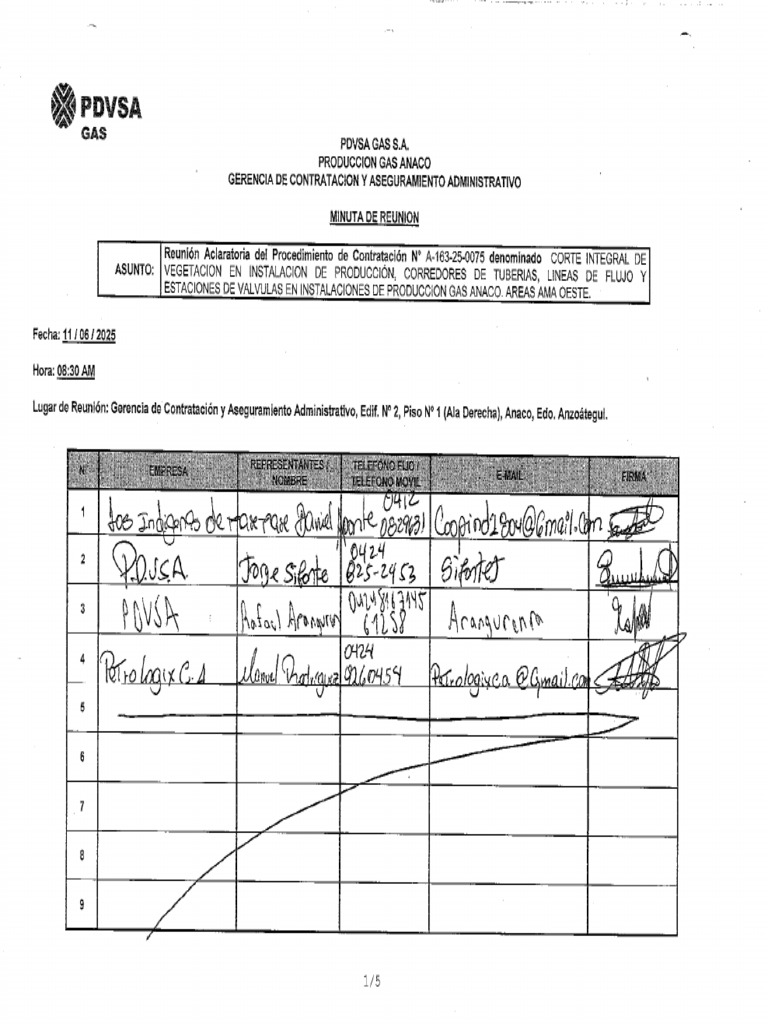 PDVSA
GAS
PDVSA GAS S.A.
PRODUCCION GAS ANACO
GERENCIA DE CONTRATACION Y ASEGURAMIENTO ADMINISTRATIVO
MINUTA DE REUNION
ASUNTO: Reunión Aclaratoria del Procedimiento de Contratación N° A-163-25-0075 denominado CORTE INTEGRAL DE
VEGETACION EN INSTALACION DE PRODUCCIÓN, CORREDORES DE TUBERIAS, LINEAS DE FLUJO Y
ESTACIONES DE VALVULAS EN INSTALACIONES DE PRODUCCION GAS ANACO. AREAS AMA OESTE.
Fecha: 11 / 06 / 2025
Hora: 08:30 AM
Lugar de Reunión: Gerencia de Contratación y Aseguramiento Administrativo, Edif. N° 2, Piso N° 1 (Ala Derecha), Anaco, Edo. Anzoátegui.
N° EMPRESA REPRESENTANTES / NOMBRE TELEFONO FIJO / TELEFONO MOVIL E-MAIL FIRMA
1 Los Indigenas de Daniel 0412 Coopind1804@Gmail.com
2 P.D.V.S.A Jorge Sifonte 0424 825-2953 Sifontes
3 PDVSA Rafael Aranguren 04248167145 61258
4 Petrologix C.A Manuel Rodriguez 0424 9260454 Petrologixca@Gmail.com
5
6
7
8
9
1/5